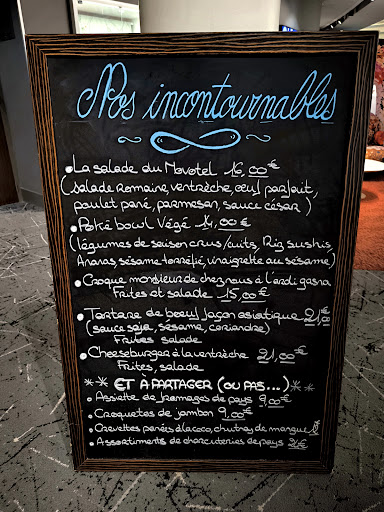 Nos incontournables
• La salade du Novotel 16,00€
(salade romaine, ventrèche, œuf parfait,
poulet pané, parmesan, sauce césar)
• Poké bowl Végé 14,00€
(légumes de saison crus/cuits, Riz sushis,
Ananas sésame torréfié, vinaigrette au sésame)
• Croque monsieur de chez nous à l'ardi gasna
Frites et salade 15,00€
• Tartare de bœuf façon asiatique 21,00€
(sauce soja, sésame, coriandre)
Frites salade
• Cheeseburger à la ventrèche 21,00€
Frites, salade
** ET À PARTAGER (OU PAS...) **
• Assiette de fromages de pays 9,00€
• Croquettes de jambon 9,00€
• Crevettes panées à la coco, chutney de mangue
• Assortiments de charcuteries de pays 21€